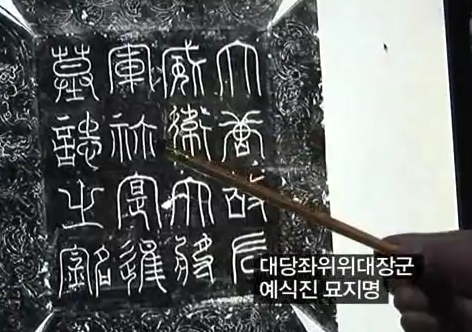 大唐故左
威衛大將
軍祢寔進
墓誌之銘
대당좌위위대장군
예식진 묘지명